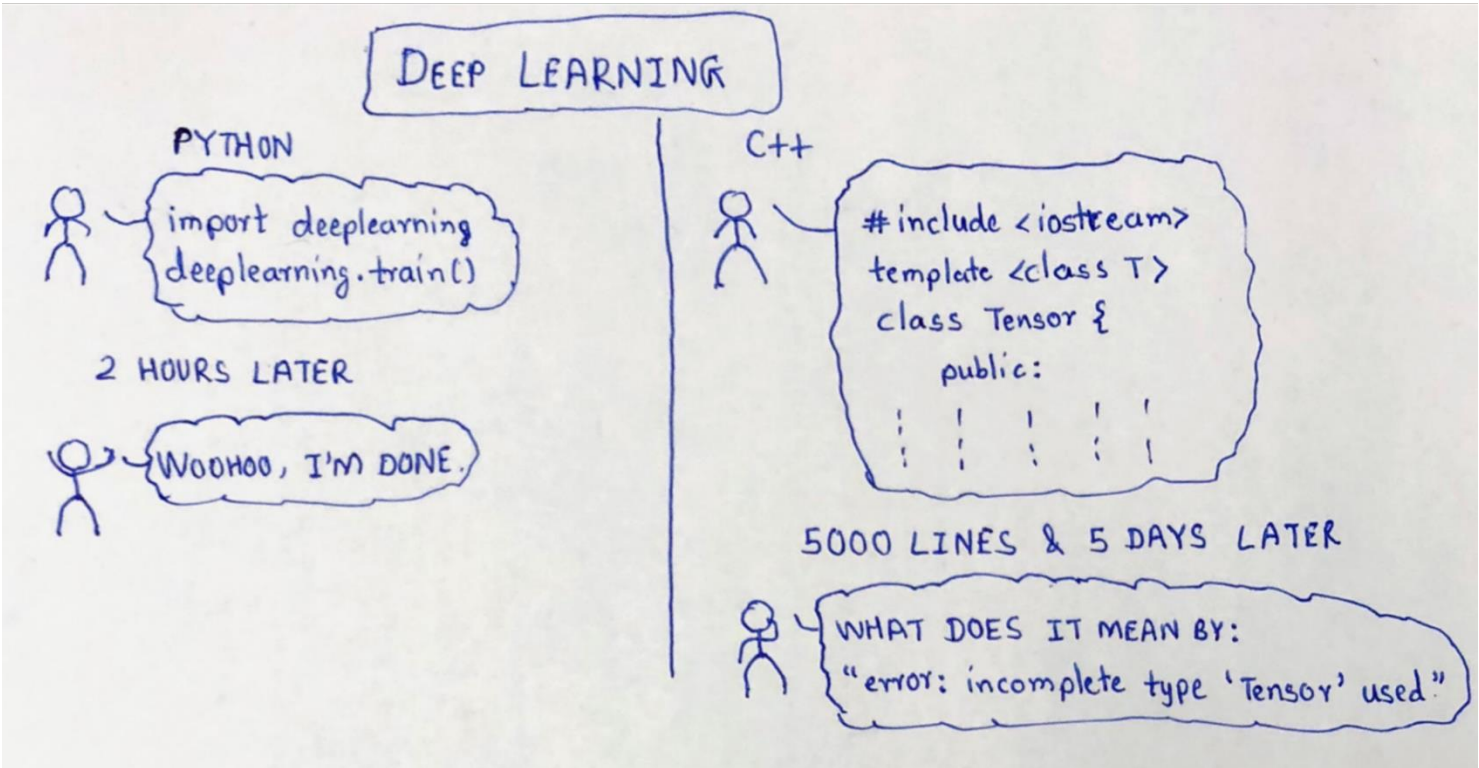 DEEP LEARNING
PYTHON
import deeplearning
deeplearning.train()
2 HOURS LATER
WOOHOO, I'M DONE.
C++
#include <iostream>
template <class T>
class Tensor {
public:
5000 LINES & 5 DAYS LATER
WHAT DOES IT MEAN BY:
"error: incomplete type 'Tensor' used"